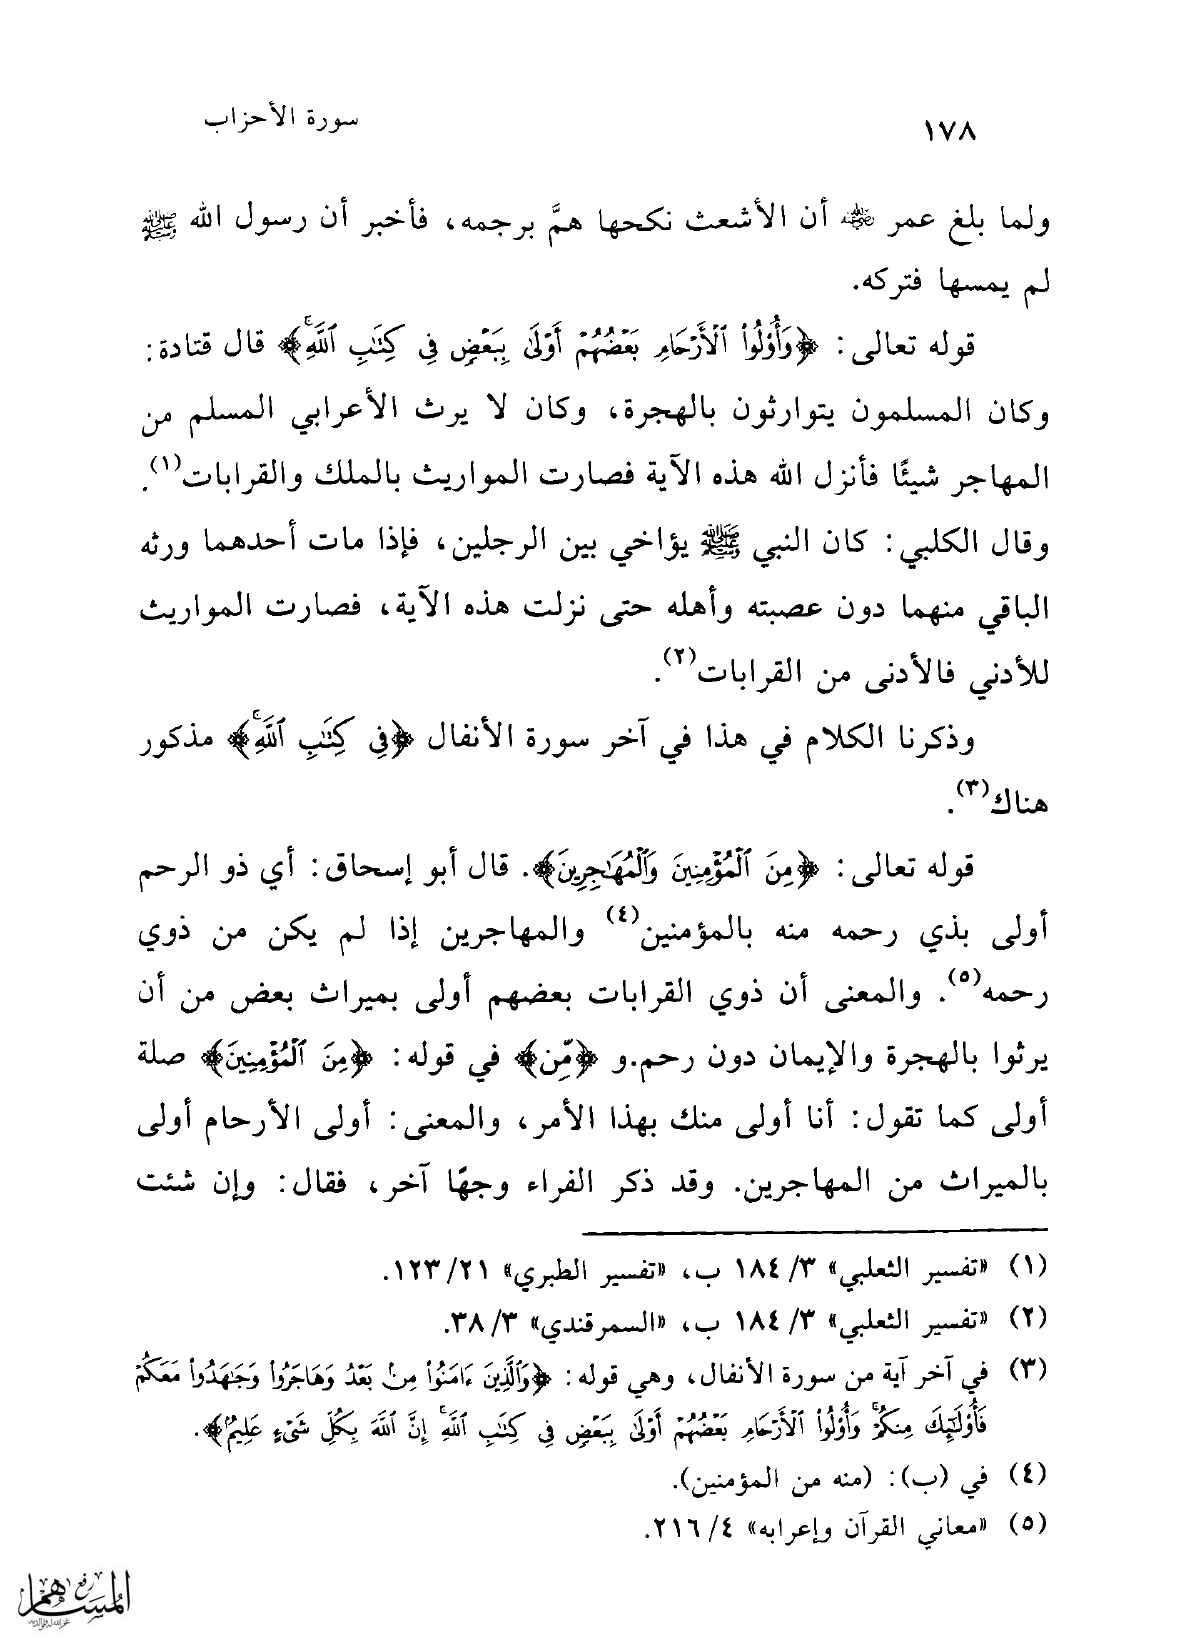 ١٧٨ سورة الأحزاب
ولما بلغ عمر ﵁ أن الأشعث نكحها همَّ برجمه، فأخبر أن رسول الله ﷺ
لم يمسها فتركه.
قوله تعالى: ﴿وَأُوْلُواْ ٱلْأَرْحَامِ بَعْضُهُمْ أَوْلَىٰ بِبَعْضٍ فِي كِتَٰبِ ٱللَّهِۚ﴾ قال قتادة:
وكان المسلمون يتوارثون بالهجرة، وكان لا يرث الأعرابي المسلم من
المهاجر شيئًا فأنزل الله هذه الآية فصارت المواريث بالملك والقرابات(١).
وقال الكلبي: كان النبي ﷺ يؤاخي بين الرجلين، فإذا مات أحدهما ورثه
الباقي منهما دون عصبته وأهله حتى نزلت هذه الآية، فصارت المواريث
للأدني فالأدنى من القرابات(٢).
وذكرنا الكلام في هذا في آخر سورة الأنفال ﴿فِي كِتَٰبِ ٱللَّهِۚ﴾ مذكور
هناك(٣).
قوله تعالى: ﴿مِنَ ٱلْمُؤْمِنِينَ وَٱلْمُهَٰجِرِينَ﴾. قال أبو إسحاق: أي ذو الرحم
أولى بذي رحمه منه بالمؤمنين(٤) والمهاجرين إذا لم يكن من ذوي
رحمه(٥). والمعنى أن ذوي القرابات بعضهم أولى بميراث بعض من أن
يرثوا بالهجرة والإيمان دون رحم.و ﴿مِّن﴾ في قوله: ﴿مِنَ ٱلْمُؤْمِنِينَ﴾ صلة
أولى كما تقول: أنا أولى منك بهذا الأمر، والمعنى: أولى الأرحام أولى
بالميراث من المهاجرين. وقد ذكر الفراء وجهًا آخر، فقال: وإن شئت
(١) «تفسير الثعلبي» ٣/ ١٨٤ ب، «تفسير الطبري» ٢١/ ١٢٣.
(٢) «تفسير الثعلبي» ٣/ ١٨٤ ب، «السمرقندي» ٣/ ٣٨.
(٣) في آخر آية من سورة الأنفال، وهي قوله: ﴿وَٱلَّذِينَ ءَامَنُواْ مِنۢ بَعْدُ وَهَاجَرُواْ وَجَٰهَدُواْ مَعَكُمْ
فَأُوْلَٰٓئِكَ مِنكُمْۚ وَأُوْلُواْ ٱلْأَرْحَامِ بَعْضُهُمْ أَوْلَىٰ بِبَعْضٍ فِي كِتَٰبِ ٱللَّهِۚ إِنَّ ٱللَّهَ بِكُلِّ شَيْءٍ عَلِيمٌۢ﴾.
(٤) في (ب): (منه من المؤمنين).
(٥) «معاني القرآن وإعرابه» ٤/ ٢١٦.